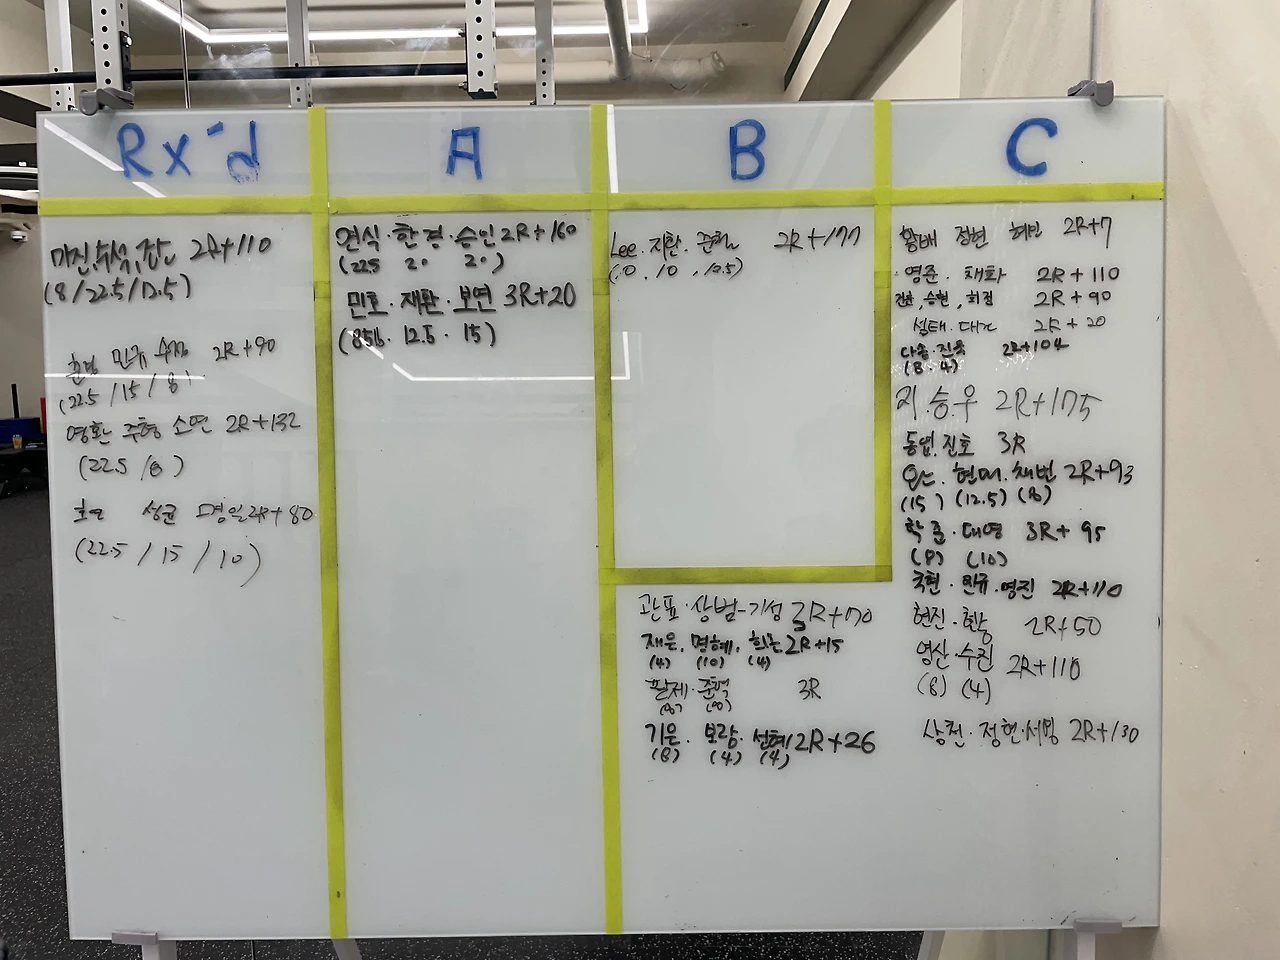 Rx'd
2R+110
(8/22.5/12.5)
민규 2R+90
(22.5/15/8)
영환 주형 소연 2R+132
(22.5/8)
성균 명일 2R+80
(22.5/15/10)
A
연식·한경·승인 2R+160
(22.5 20 20)
민호·재환·보연 3R+20
(85lb. 12.5 · 15)
B
Lee. 지환. 2R+177
(10, 10, 12.5)
관표·상범-기성 3R+70
재은. 명혜. 희은 2R+15
(4) (10) (4)
3R
기은. 보람. 선혜 2R+26
(8) (4) (4)
C
정현 2R+7
영준. 채화 2R+110
승현, 희정 2R+90
2R+20
2R+104
(8. 4)
승우 2R+175
동업. 진호 3R
2R+93
(15) (12.5) (8)
학준·대영 3R+95
(10)
국현·민규·명진 2R+110
현진. 2R+50
영산·수진 2R+110
(8) (4)
상천·정현·서명 2R+130